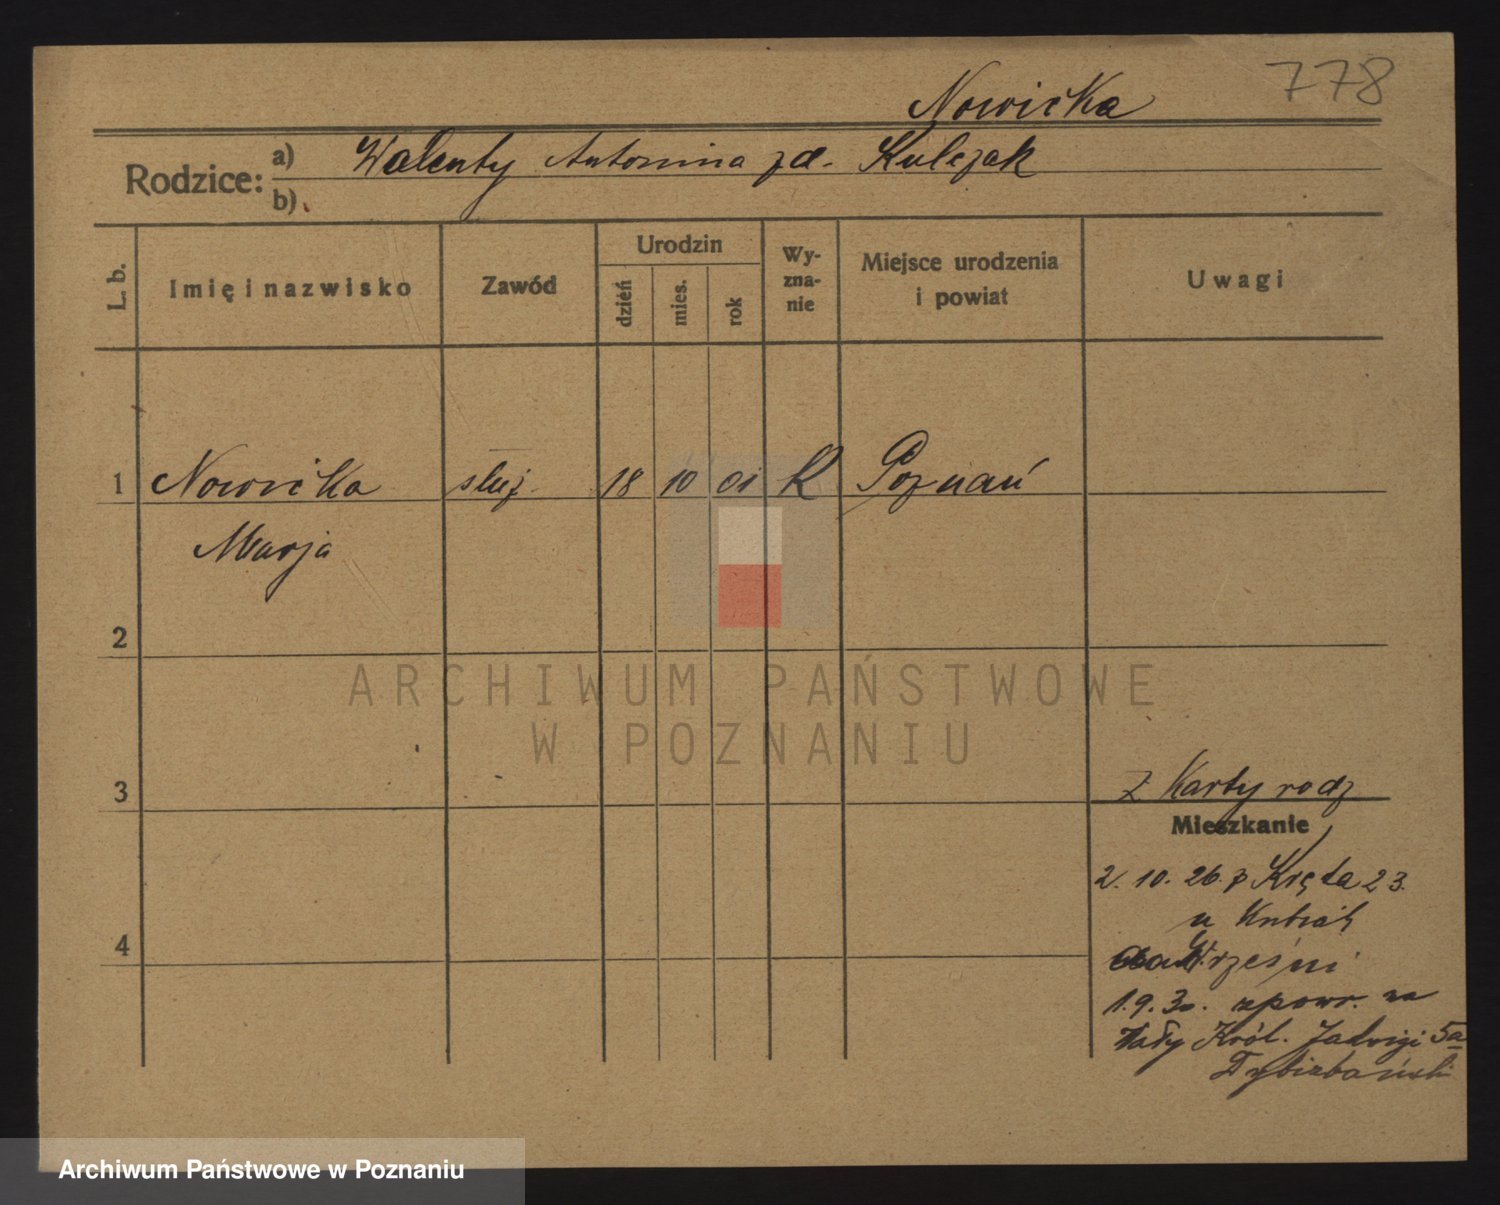 778
Nowicka
Rodzice: a) Walenty Antonina zd. Kulczak
b)
L. b.
Imię i nazwisko
Zawód
Urodzin
dzień
mies.
rok
Wy-
zna-
nie
Miejsce urodzenia
i powiat
Uwagi
1 Nowicka służ. 18 10 01 K Poznań
Marja
2
3
4
z Karty rodz
Mieszkanie
2. 10. 26. p Kręta 23.
u Kubiak
Wrześni
1.9.30. z powr. na
Wały Król. Jadwigi 5a
ARCHIWUM PAŃSTWOWE
W POZNANIU
Archiwum Państwowe w Poznaniu